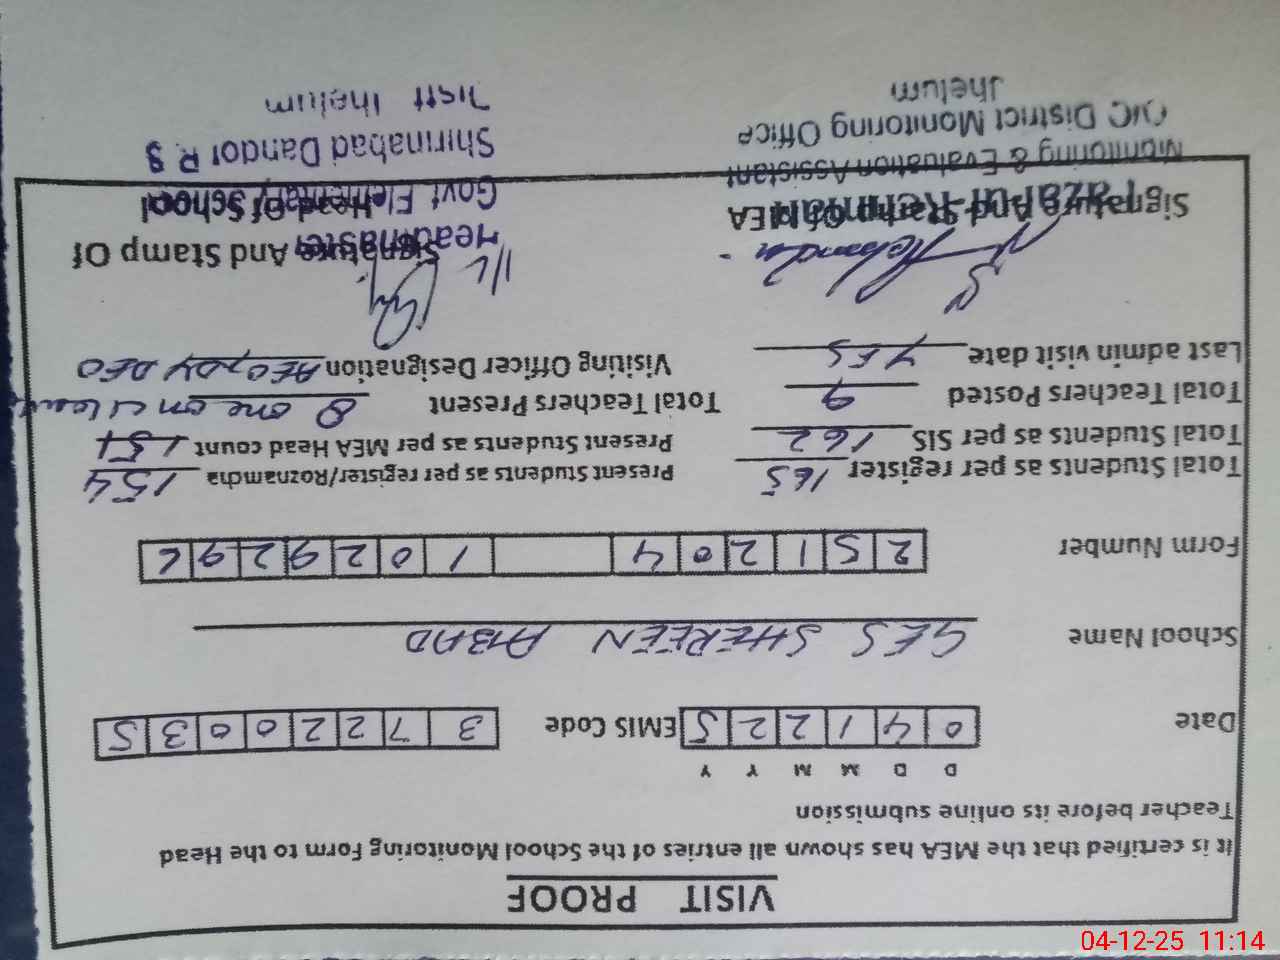 VISIT PROOF
It is certified that the MEA has shown all entries of the School Monitoring Form to the Head
Teacher before its online submission
D D M M Y Y
Date 0 4 1 2 2 5 EMIS Code 3 7 2 2 0 0 3 5
School Name GES SHEREEN ABAD
Form Number 2 5 1 2 0 4 1 0 2 9 2 9 6
Total Students as per register 165 Present Students as per register/Roznamcha 154
Total Students as per SIS 162 Present Students as per MEA Head count
Total Teachers Posted 9 Total Teachers Present 8 one on c/leave
Last admin visit date YES Visiting Officer Designation AEO, DY DEO
Signature And Stamp Of MEA
Signature And Stamp Of
Head Of School
Fazal-ur-Rehman
Monitoring & Evaluation Assistant
O/C District Monitoring Office
Jhelum
Headmaster
Govt. Elementary School
Shirinabad Dandot R.S
Distt Jhelum
04-12-25 11:14